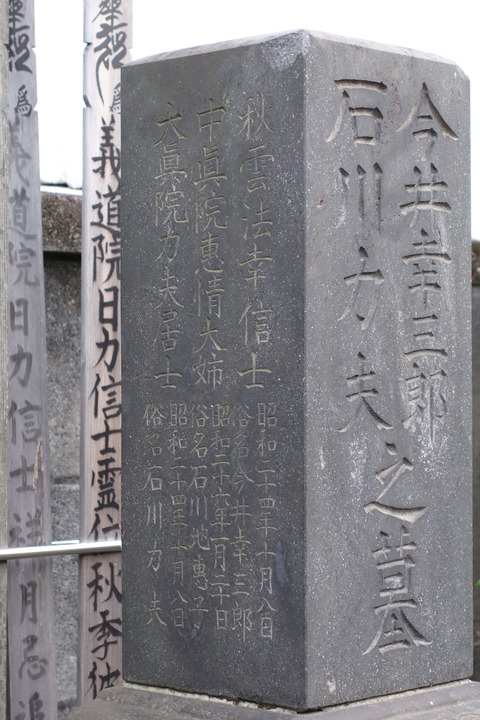 今井幸三郎
石川力夫之墓
秋雲法幸信士
昭和二十四年十月八日
俗名今井幸三郎
中眞院惠情大姉
昭和二十六年一月二十日
俗名石川地惠子
大眞院力夫居士
昭和二十四年十月八日
俗名石川力夫
為義道院日力信士霊位秋季彼
為義道院日力信士祥月忌追